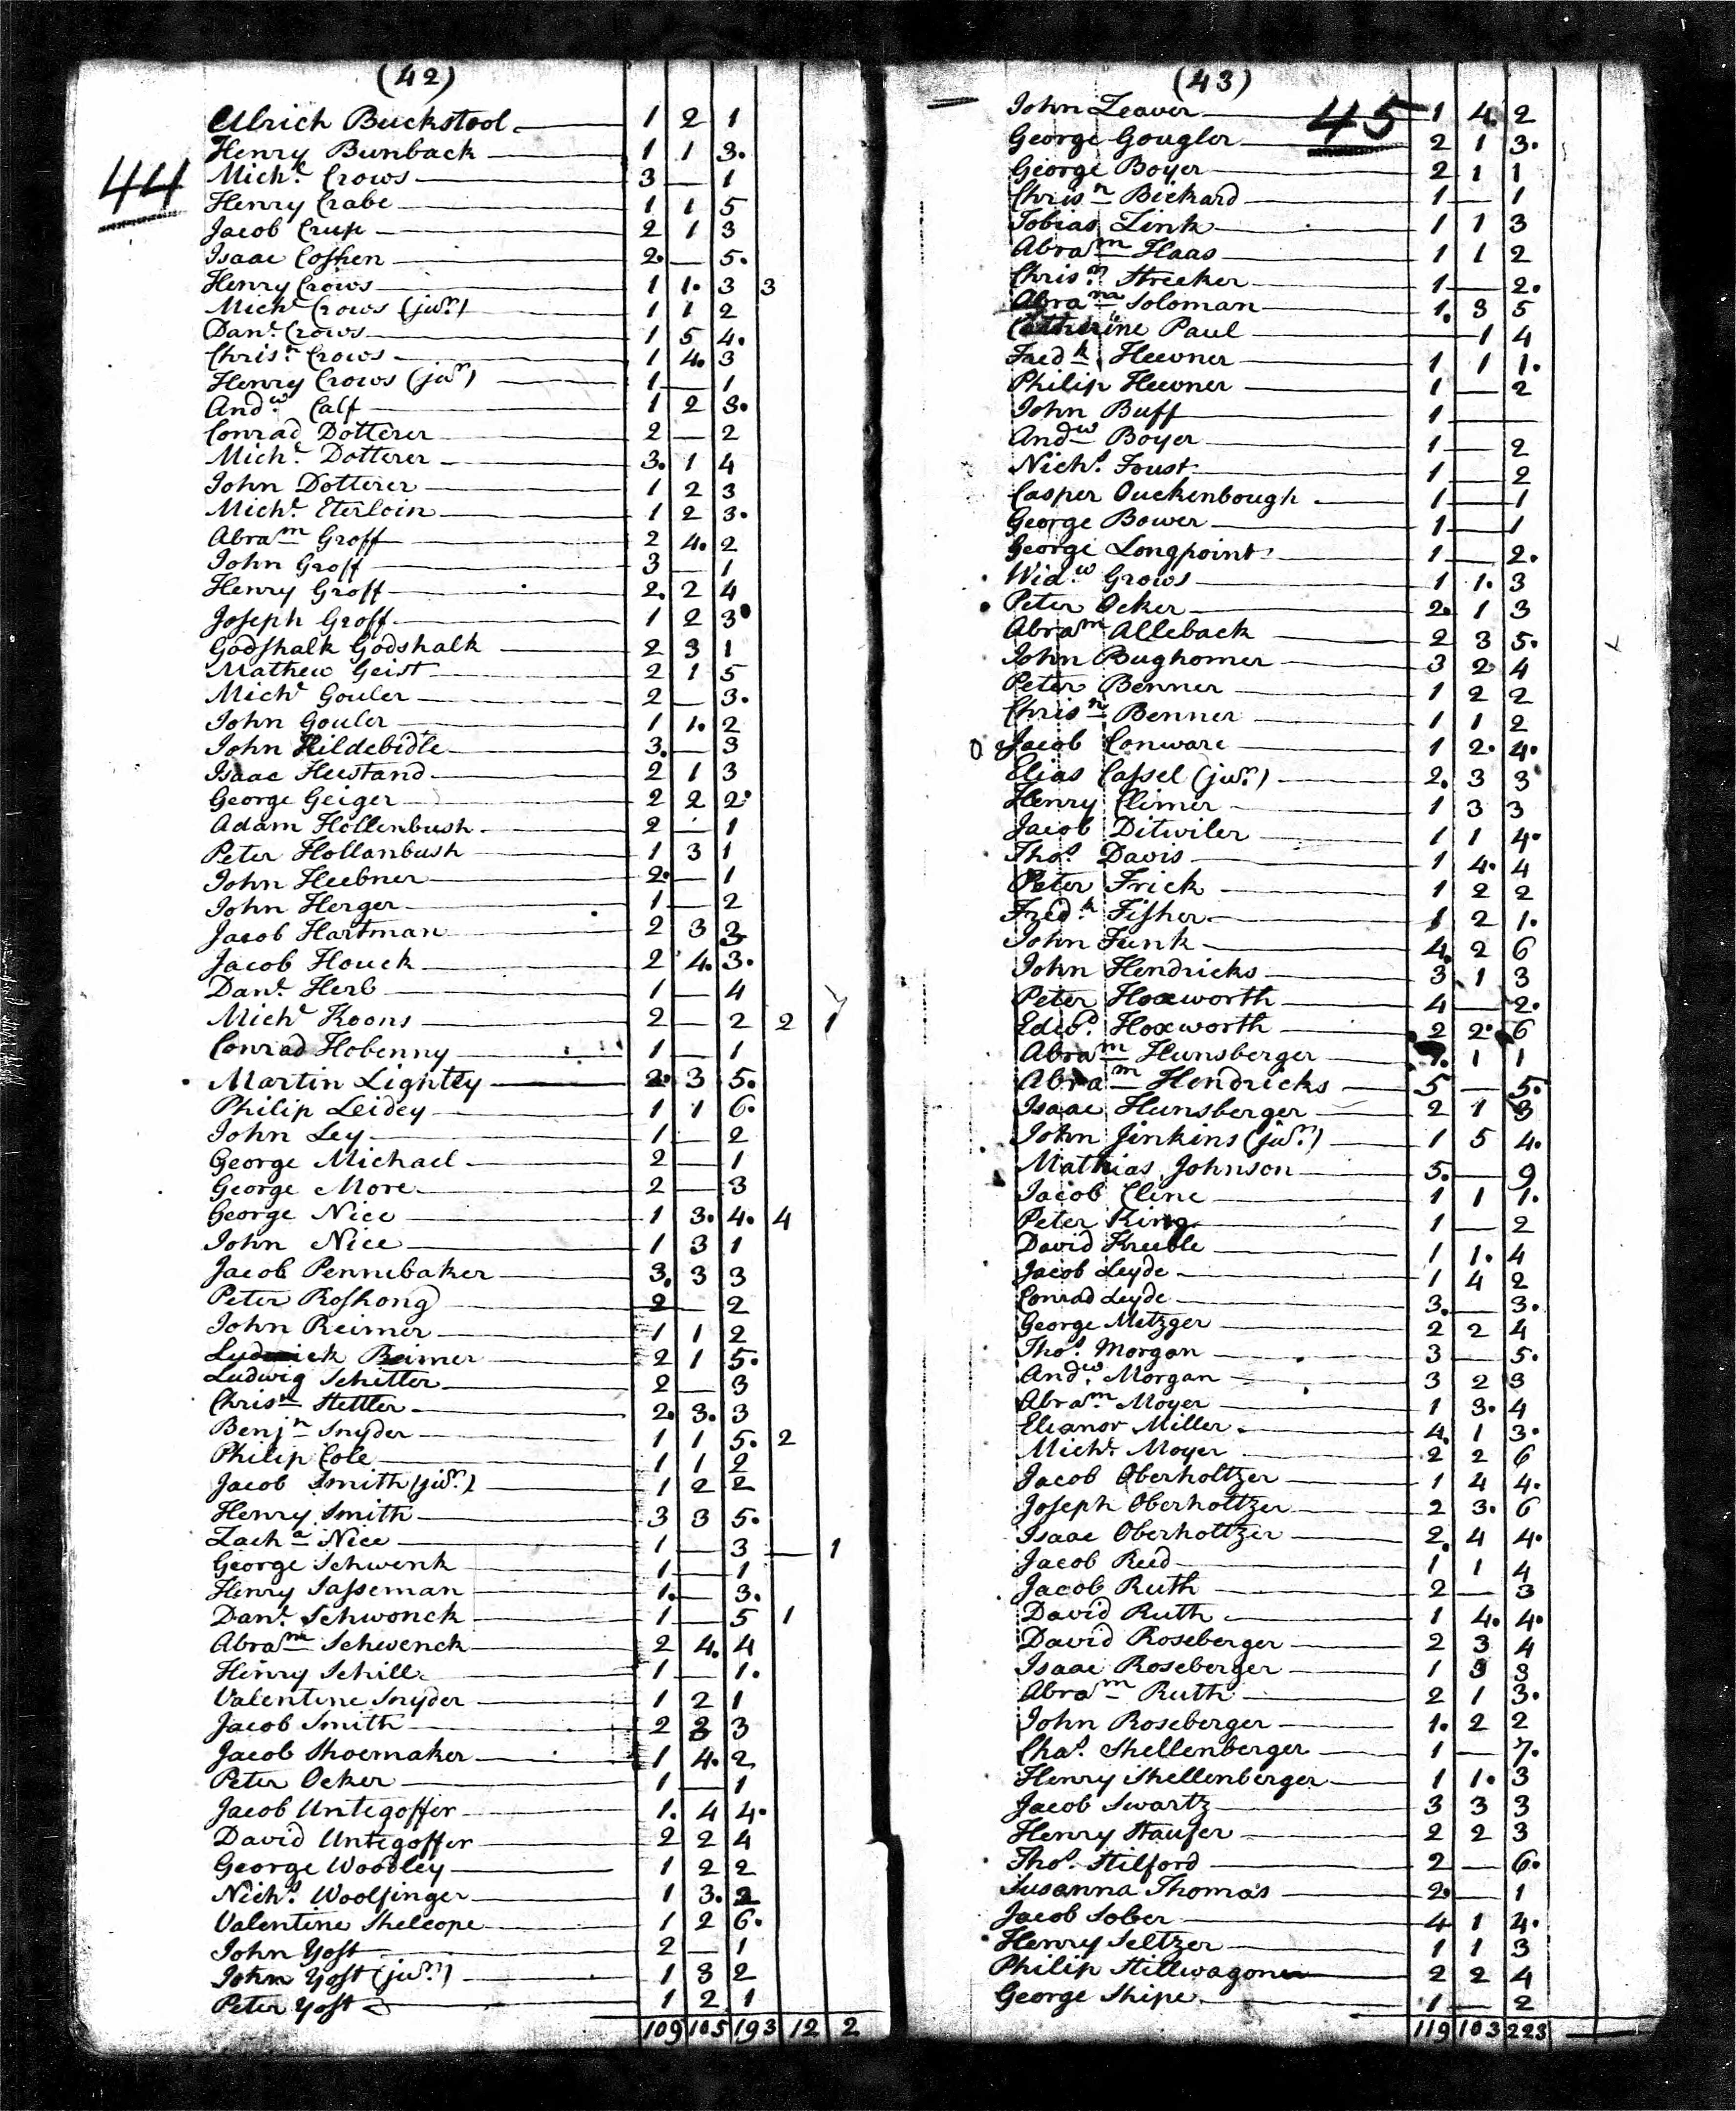 (42)
44
Ulrich Buckstool 1 2 1
Henry Bunback 1 1 3.
Mich.l Crows 3 — 1
Henry Crabe 1 1 5
Jacob Crup 2 1 3
Isaac Coshen 2. — 5.
Henry Crows 1 1. 3 3
Mich.l Crows (jun.r) 1 1 2
Dan.l Crows 1 5 4.
Chris.n Crows 1 4. 3
Henry Crows (jun.r) 1 — 1
And.w Calf 1 2 3.
Conrad Dotterer 2 — 2
Mich.l Dotterer 3. 1 4
John Dotterer 1 2 3
Mich.l Eterloin 1 2 3.
Abra.m Groff 2 4. 2
John Groff 3 — 1
Henry Groff 2. 2 4
Joseph Groff 1 2 3.
Godshalk Godshalk 2 3 1
Mathew Geist 2 1 5
Mich.l Gouler 2 — 3.
John Gouler 1 1. 2
John Hildebidle 3. — 3
Isaac Heestand 2 1 3
George Geiger 2 2 2.
Adam Hollenbush 2 — 1
Peter Hollanbush 1 3 1
John Heebner 2. — 1
John Herger 1 — 2
Jacob Hartman 2 3 3
Jacob Houck 2 4. 3.
Dan.l Herb 1 — 4
Mich.l Koons 2 — 2 2 1
Conrad Hobenny 1 — 1
Martin Lightly 2. 3 5.
Philip Leidey 1 1 6.
John Ley 1 — 2
George Michael 2 — 1
George More 2 — 3
George Nice 1 3. 4. 4
John Nice 1 3 1
Jacob Pennebaker 3. 3 3
Peter Roshong 2 — 2
John Reimer 1 1 2
Reimer 2 1 5.
Ludwig Schitter 2 — 3
Chris.n Stettler 2. 3. 3
Benj.n Snyder 1 1 5. 2
Philip Cole 1 1 2
Jacob Smith (jun.r) 1 2 2
Henry Smith 3 3 5.
Zach.a Nice 1 — 3 — 1
George Schwenk 1 — 1
Henry Sasseman 1. — 3.
Dan.l Schwonck 1 — 5 1
Abra.m Schwenck 2 4. 4
Henry Schill 1 — 1.
Valentine Snyder 1 2 1
Jacob Smith 2 3 3
Jacob Shoemaker 1 4. 2
Peter Ocker 1 — 1
Jacob Untegoffer 1. 4 4.
David Untegoffer 2 2 4
George Woodley 1 2 2
Nich.s Woolfinger 1 3. 2
Valentine Shelcope 1 2 6.
John Yost 2 — 1
John Yost (jun.r) 1 3 2
Peter Yost 1 2 1
109 105 193 12 2
(43)
45
John Zeaver 1 4. 2
George Gougler 2 1 3.
George Boyer 2 1 1
Chris.n Bickard 1 — 1
Tobias Zink 1 1 3
Abra.m Haas 1 1 2
Chris.n Streeker 1 — 2.
Abra.m Soloman 1. 3 5
Catherine Paul — 1 4
Fred.k Heevner 1 1 1.
Philip Heevner 1 — 2
John Buff 1 —
And.w Boyer 1 — 2
Nich.s Foust 1 — 2
Casper Ouckenbough 1 — 1
George Bower 1 — 1
George Longpoint 1 — 2.
Wid.w Grows 1 1. 3
Peter Ocker 2. 1 3
Abra.m Alleback 2 3 5.
John Bughomer 3 2 4
Peter Benner 1 2 2
Chris.n Benner 1 1 2
Jacob Conware 1 2. 4.
Elias Cassel (jun.r) 2. 3 3
Henry Climer 1 3 3
Jacob Ditwiler 1 1 4.
Tho.s Davis 1 4. 4
Peter Frick 1 2 2
Fred.k Fisher 1 2 1.
John Funk 4. 2 6
John Hendricks 3 1 3
Peter Hoxworth 4 — 2.
Edw.d Hoxworth 2 2. 6
Abra.m Hunsberger 1. 1 1
Abra.m Hendricks 5 — 5.
Isaac Hunsberger 2 1 3
John Jinkins (jun.r) 1 5 4.
Mathias Johnson 5. — 9
Jacob Cline 1 1 1.
Peter King 1 — 2
David Kreeble 1 1. 4
Jacob Leyde 1 4 2
Conrad Leyde 3. — 3.
George Metzger 2 2 4
Tho.s Morgan 3 — 5.
And.w Morgan 3 2 3
Abra.m Moyer 1 3. 4
Eleanor Miller 4. 1 3.
Mich.l Moyer 2 2 6
Jacob Oberholtzer 1 4 4.
Joseph Oberholtzer 2 3. 6
Isaac Oberholtzer 2. 4 4.
Jacob Reed 1 1 4
Jacob Ruth 2 — 3
David Ruth 1 4. 4.
David Roseberger 2 3 4
Isaac Roseberger 1 3 3
Abra.m Ruth 2 1 3.
John Roseberger 1. 2 2
Cha.s Shellenberger 1 — 7.
Henry Shellenberger 1 1. 3
Jacob Swartz 3 3 3
Henry Staufer 2 2 3
Tho.s Stilford 2 — 6.
Susanna Thomas 2. — 1
Jacob Sober 4 1 4.
Henry Seltzer 1 1 3
Philip Stillwagoner 2 2 4
George Shipe 1 — 2
119 103 223